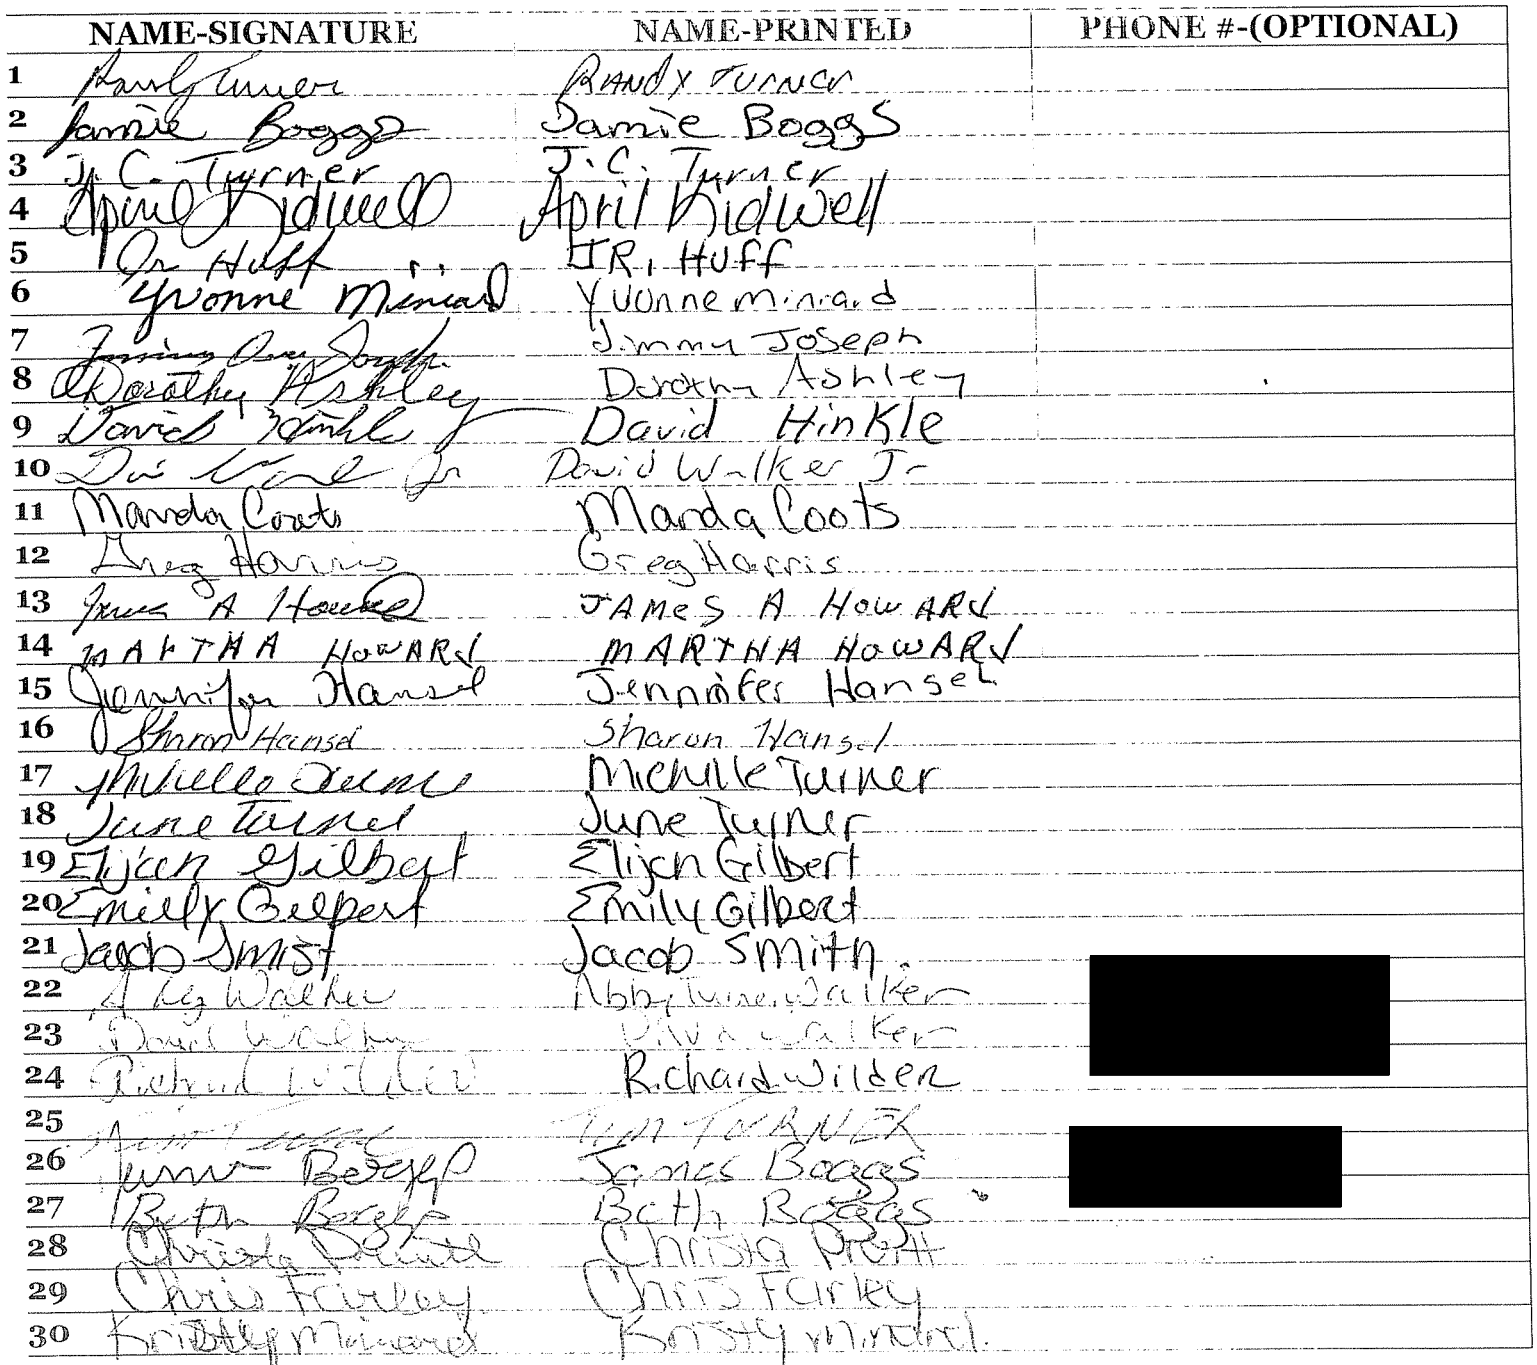 NAME-SIGNATURE NAME-PRINTED PHONE #-(OPTIONAL)
1 Randy Turner RANDY TURNER
2 Jamie Boggs Jamie Boggs
3 J.C. Turner J.C. Turner
4 April Kidwell April Kidwell
5 Jr Huff JR. Huff
6 Yvonne Miniard Yvonne Miniard
7 Joseph Jimmy Joseph
8 Dorothy Ashley Dorothy Ashley
9 David Hinkle David Hinkle
10 Jr David Walker Jr
11 Manda Coots Manda Coots
12 Greg Harris Greg Harris
13 James A Howard JAMES A HOWARD
14 MARTHA HOWARD MARTHA HOWARD
15 Jennifer Hansel Jennifer Hansel
16 Sharon Hansel Sharon Hansel
17 Michelle Turner Michelle Turner
18 June Turner June Turner
19 Elijah Gilbert Elijah Gilbert
20 Emily Gilbert Emily Gilbert
21 Jacob Smith Jacob Smith
22 Abby Walker Abby Walker
23 David Walker Walker
24 Richard Wilder Richard Wilder
25 Tim Turner TIM TURNER
26 James Boggs James Boggs
27 Beth Boggs Beth Boggs
28 Christa Pruitt Christa Pruitt
29 Chris Farley Chris Farley
30 Kristy Miniard Kristy Miniard